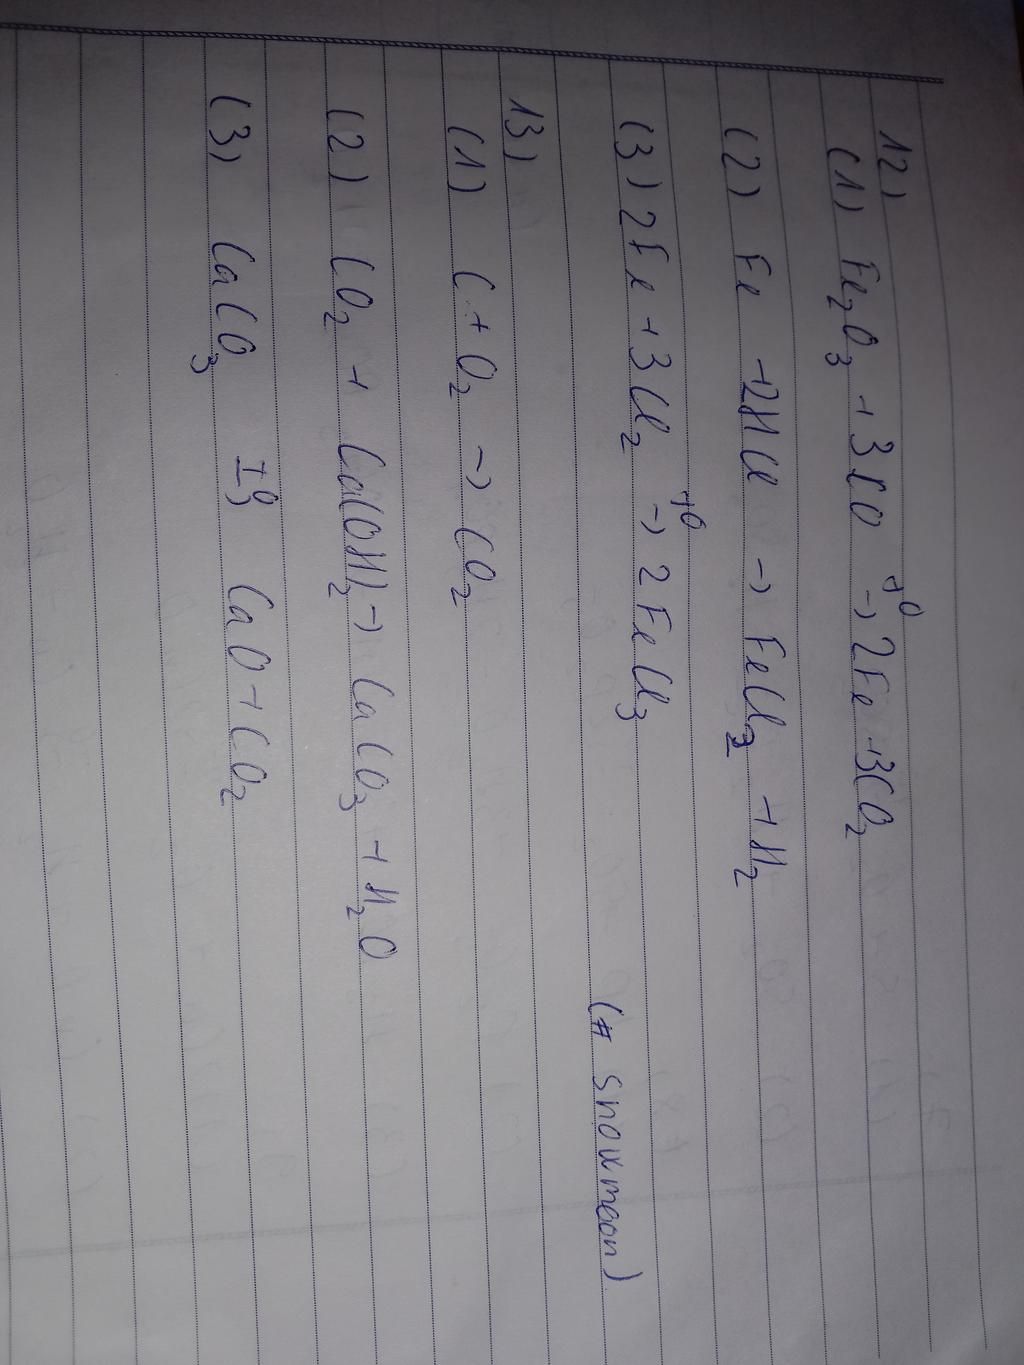 12)
(1) Fe₂O₃ + 3CO →ᵗ⁰ 2Fe + 3CO₂
(2) Fe + 2HCl → FeCl₂ + H₂
(3) 2Fe + 3Cl₂ →ᵗ⁰ 2FeCl₃
(# snowmoon)
13)
(1) C + O₂ → CO₂
(2) CO₂ + Ca(OH)₂ → CaCO₃ + H₂O
(3) CaCO₃ →ᵗ⁰ CaO + CO₂